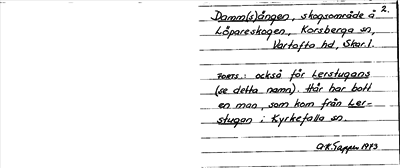 2.
Damm(s)ången, skogsområde å
Löpareskogen, Korsberga sn,
Vartofta hd, Skar. l.
FORTS.: också för Lerstugans
(se detta namn). Här har bott
en man, som kom från Ler-
stugan i Kyrkefalla sn.
1973